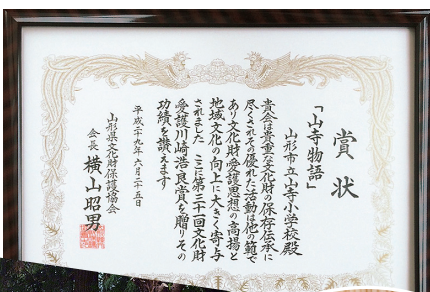 賞状
「山寺物語」
山形市立山寺小学校殿
貴会は貴重な文化財の保存伝承に
尽くされその優れた活動は他の範で
あり文化財愛護思想の高揚と
地域文化の向上に大きく寄与
されました ここに第三十一回文化財
愛護川崎浩良賞を贈りその
功績を讃えます
平成二十九年六月二十五日
山形県文化財保護協会
会長 横山昭男